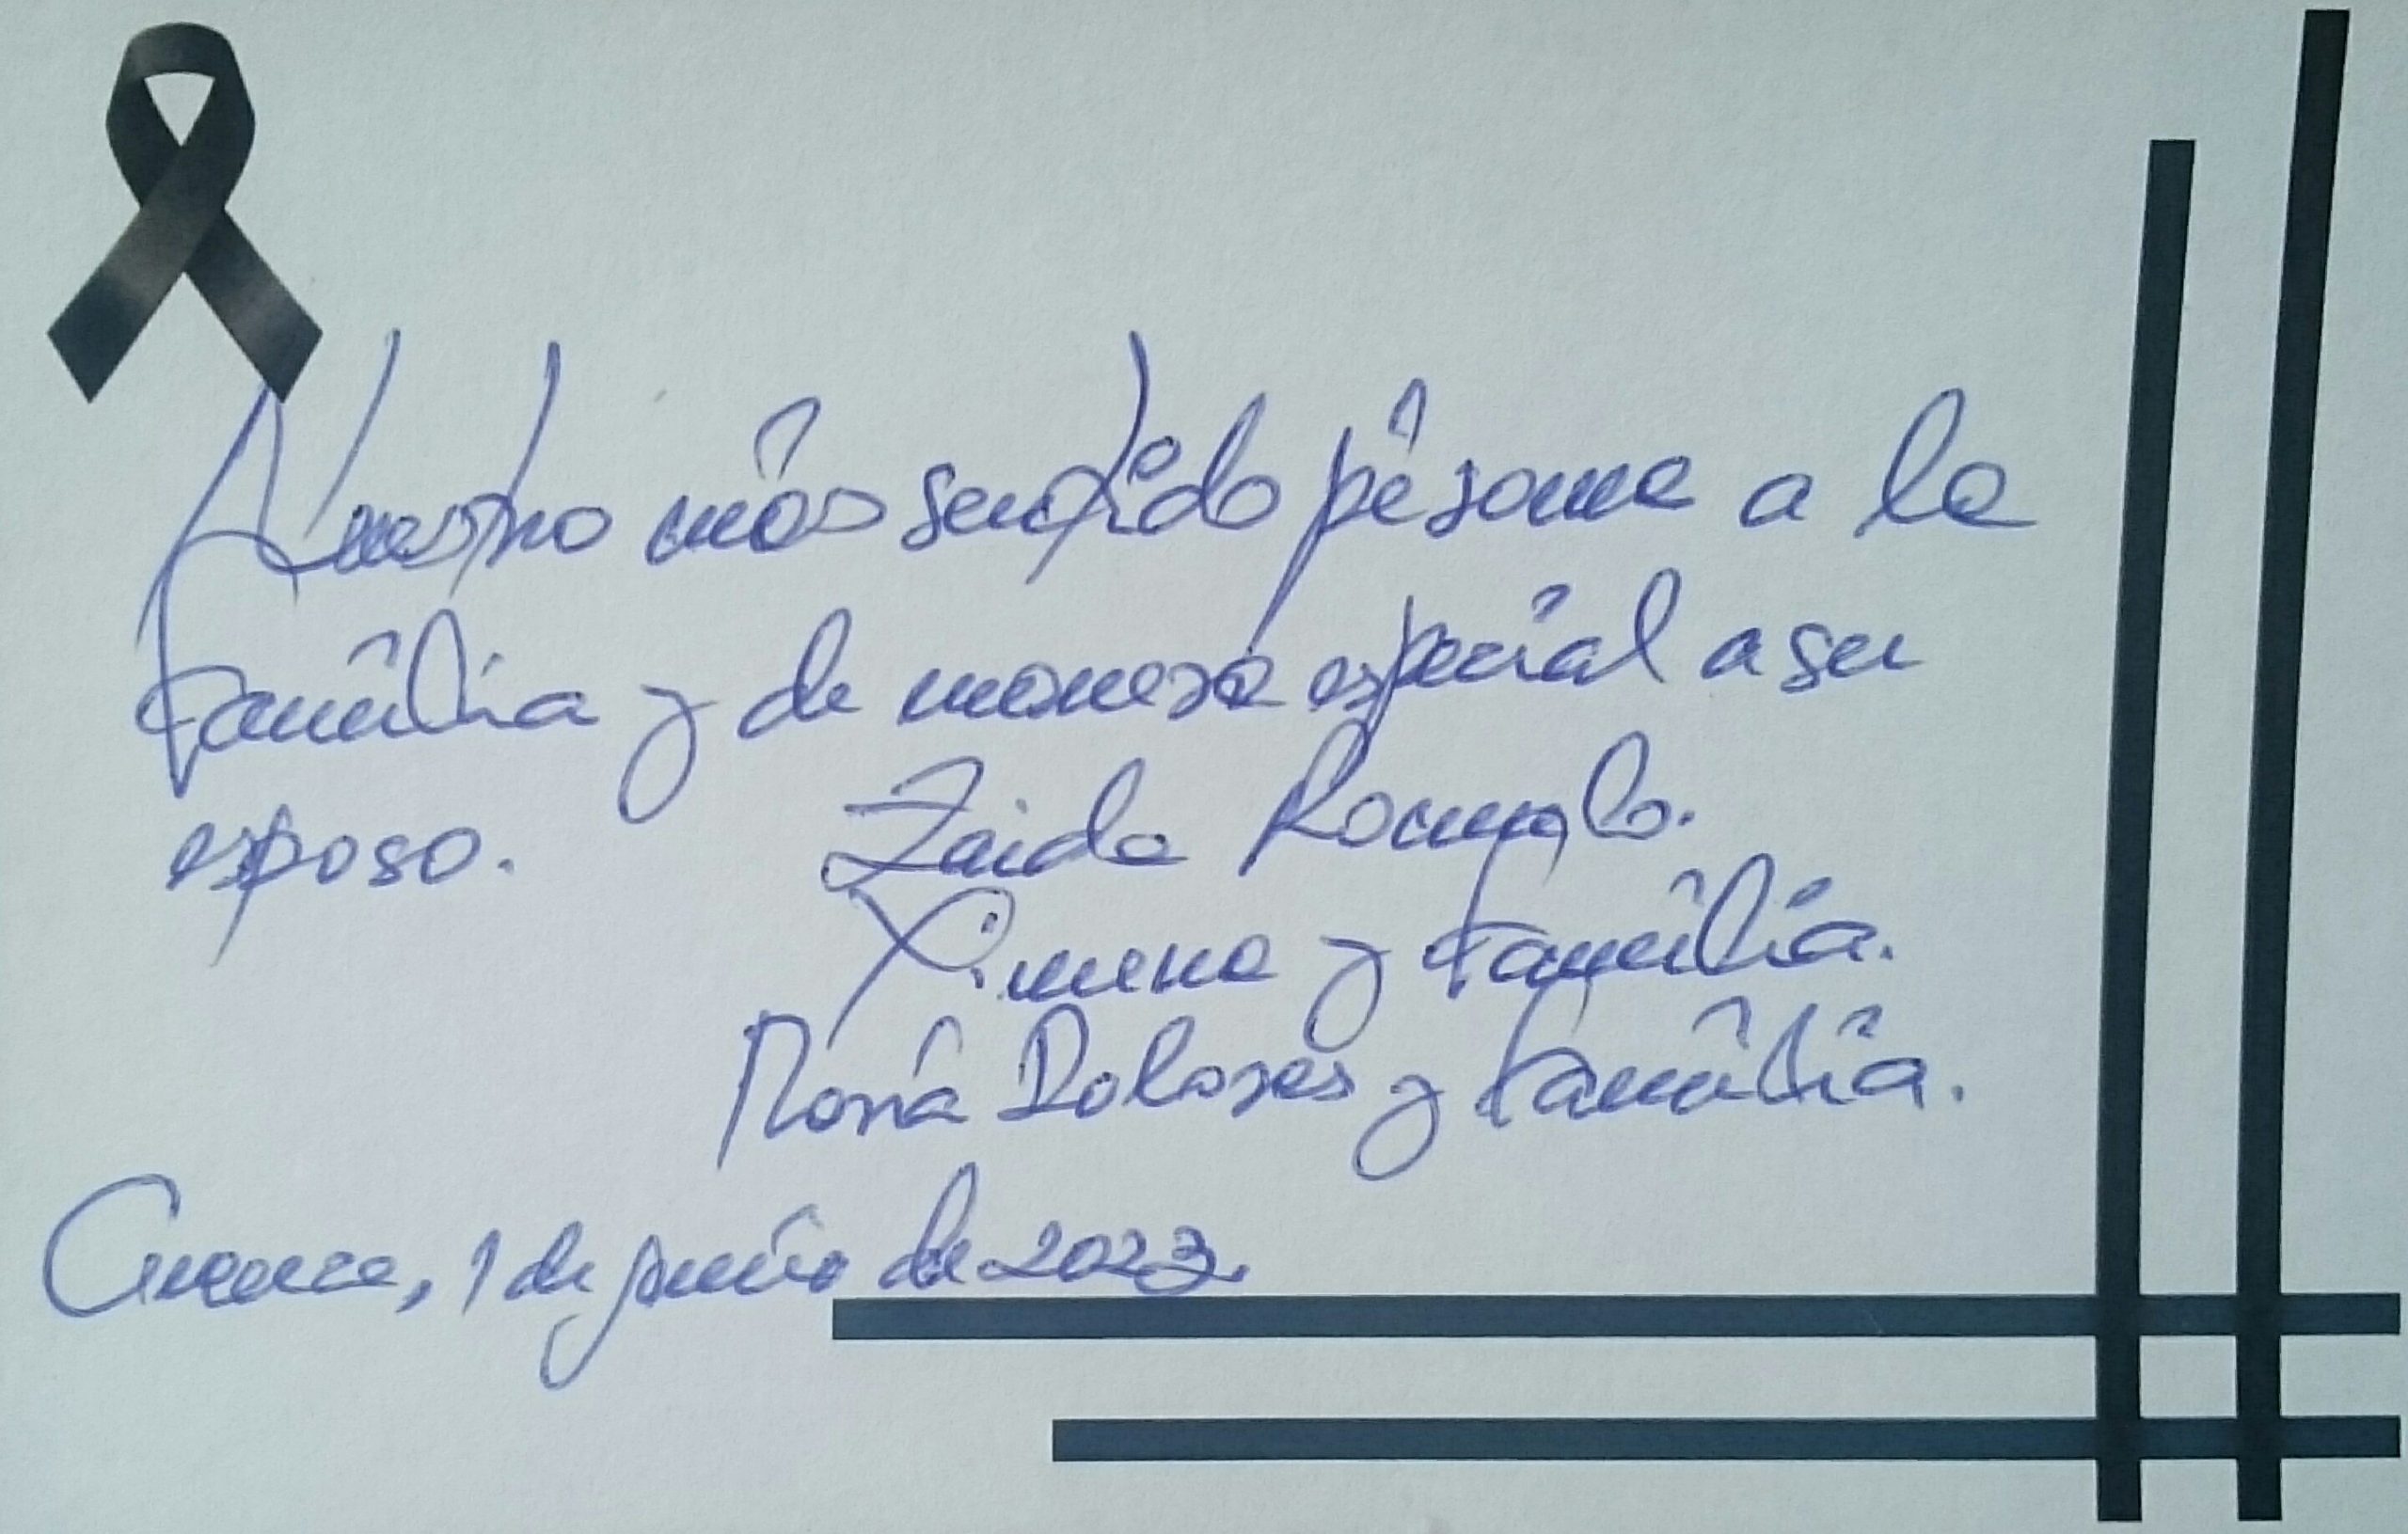 Nuestro más sentido pésame a la
familia y de manera especial a su
esposo. Zaida
Ximena y familia.
María Dolores y familia.
Cuenca, 1 de junio de 2023.